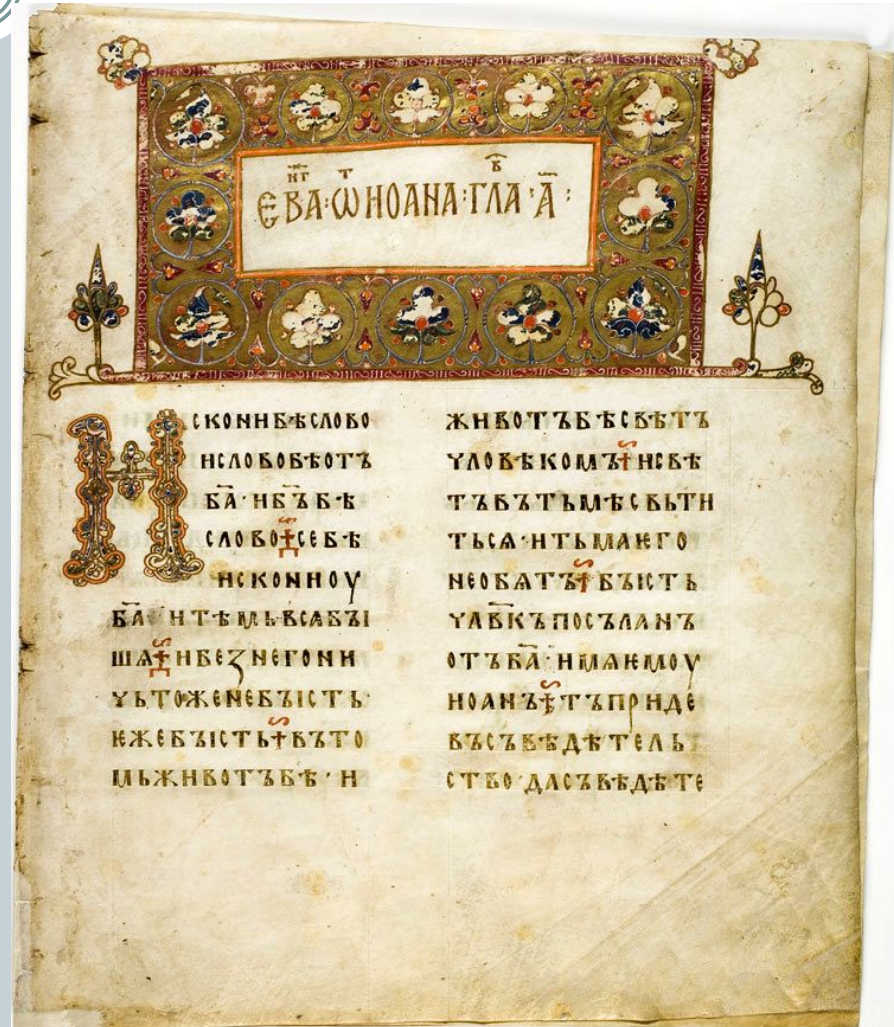 ЕВА҃НГ·Ѿ ИОАНА·ГЛА҃В·А҃:
ИСКОНИБѢСЛОВО
ИСЛОВОБѢОТЪ
БА҃·ИБ҃ЪБѢ
СЛОВО СЕБѢ
ИСКОНИОУ
БА҃·ИТѢМЬВСꙖБЪІ
ШѦ ИБЕЗНЕГОНИ
ЧЬТОЖЕНЕБЪІСТЬ·
ѤЖЕБЪІСТЬ ВЪТО
МЬЖИВОТЪБѢ·И
ЖИВОТЪБѢСВѢТЪ
ЧЛОВѢКОМЪ ИСВѢ
ТЪВЪТЬМѢСВЬТИ
ТЬСѦ·ИТЬМАѤГО
НЕОБѦТЪ БЪІСТЬ
ЧЛВ҃КЪПОСЪЛАНЪ
ОТЪБА҃·ИМѦѤМОУ
ИОАНЪ ТЪПРИДЕ
ВЪСЪВѢДѢТЕЛЬ
СТВО·ДАСЪВѢДѢТЕ